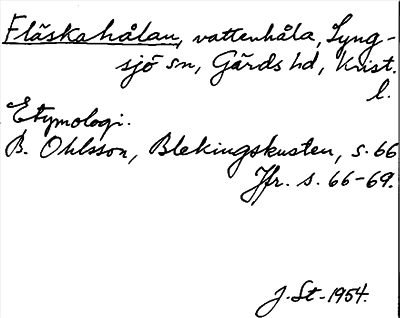 Fläskahålan, vattenhåla, Lyng-
sjö sn, Gärds hd, Krist.
l.
Etymologi.
B. Ohlsson, Blekingskusten, s. 66
Jfr. s. 66-69.
J. St. 1954.